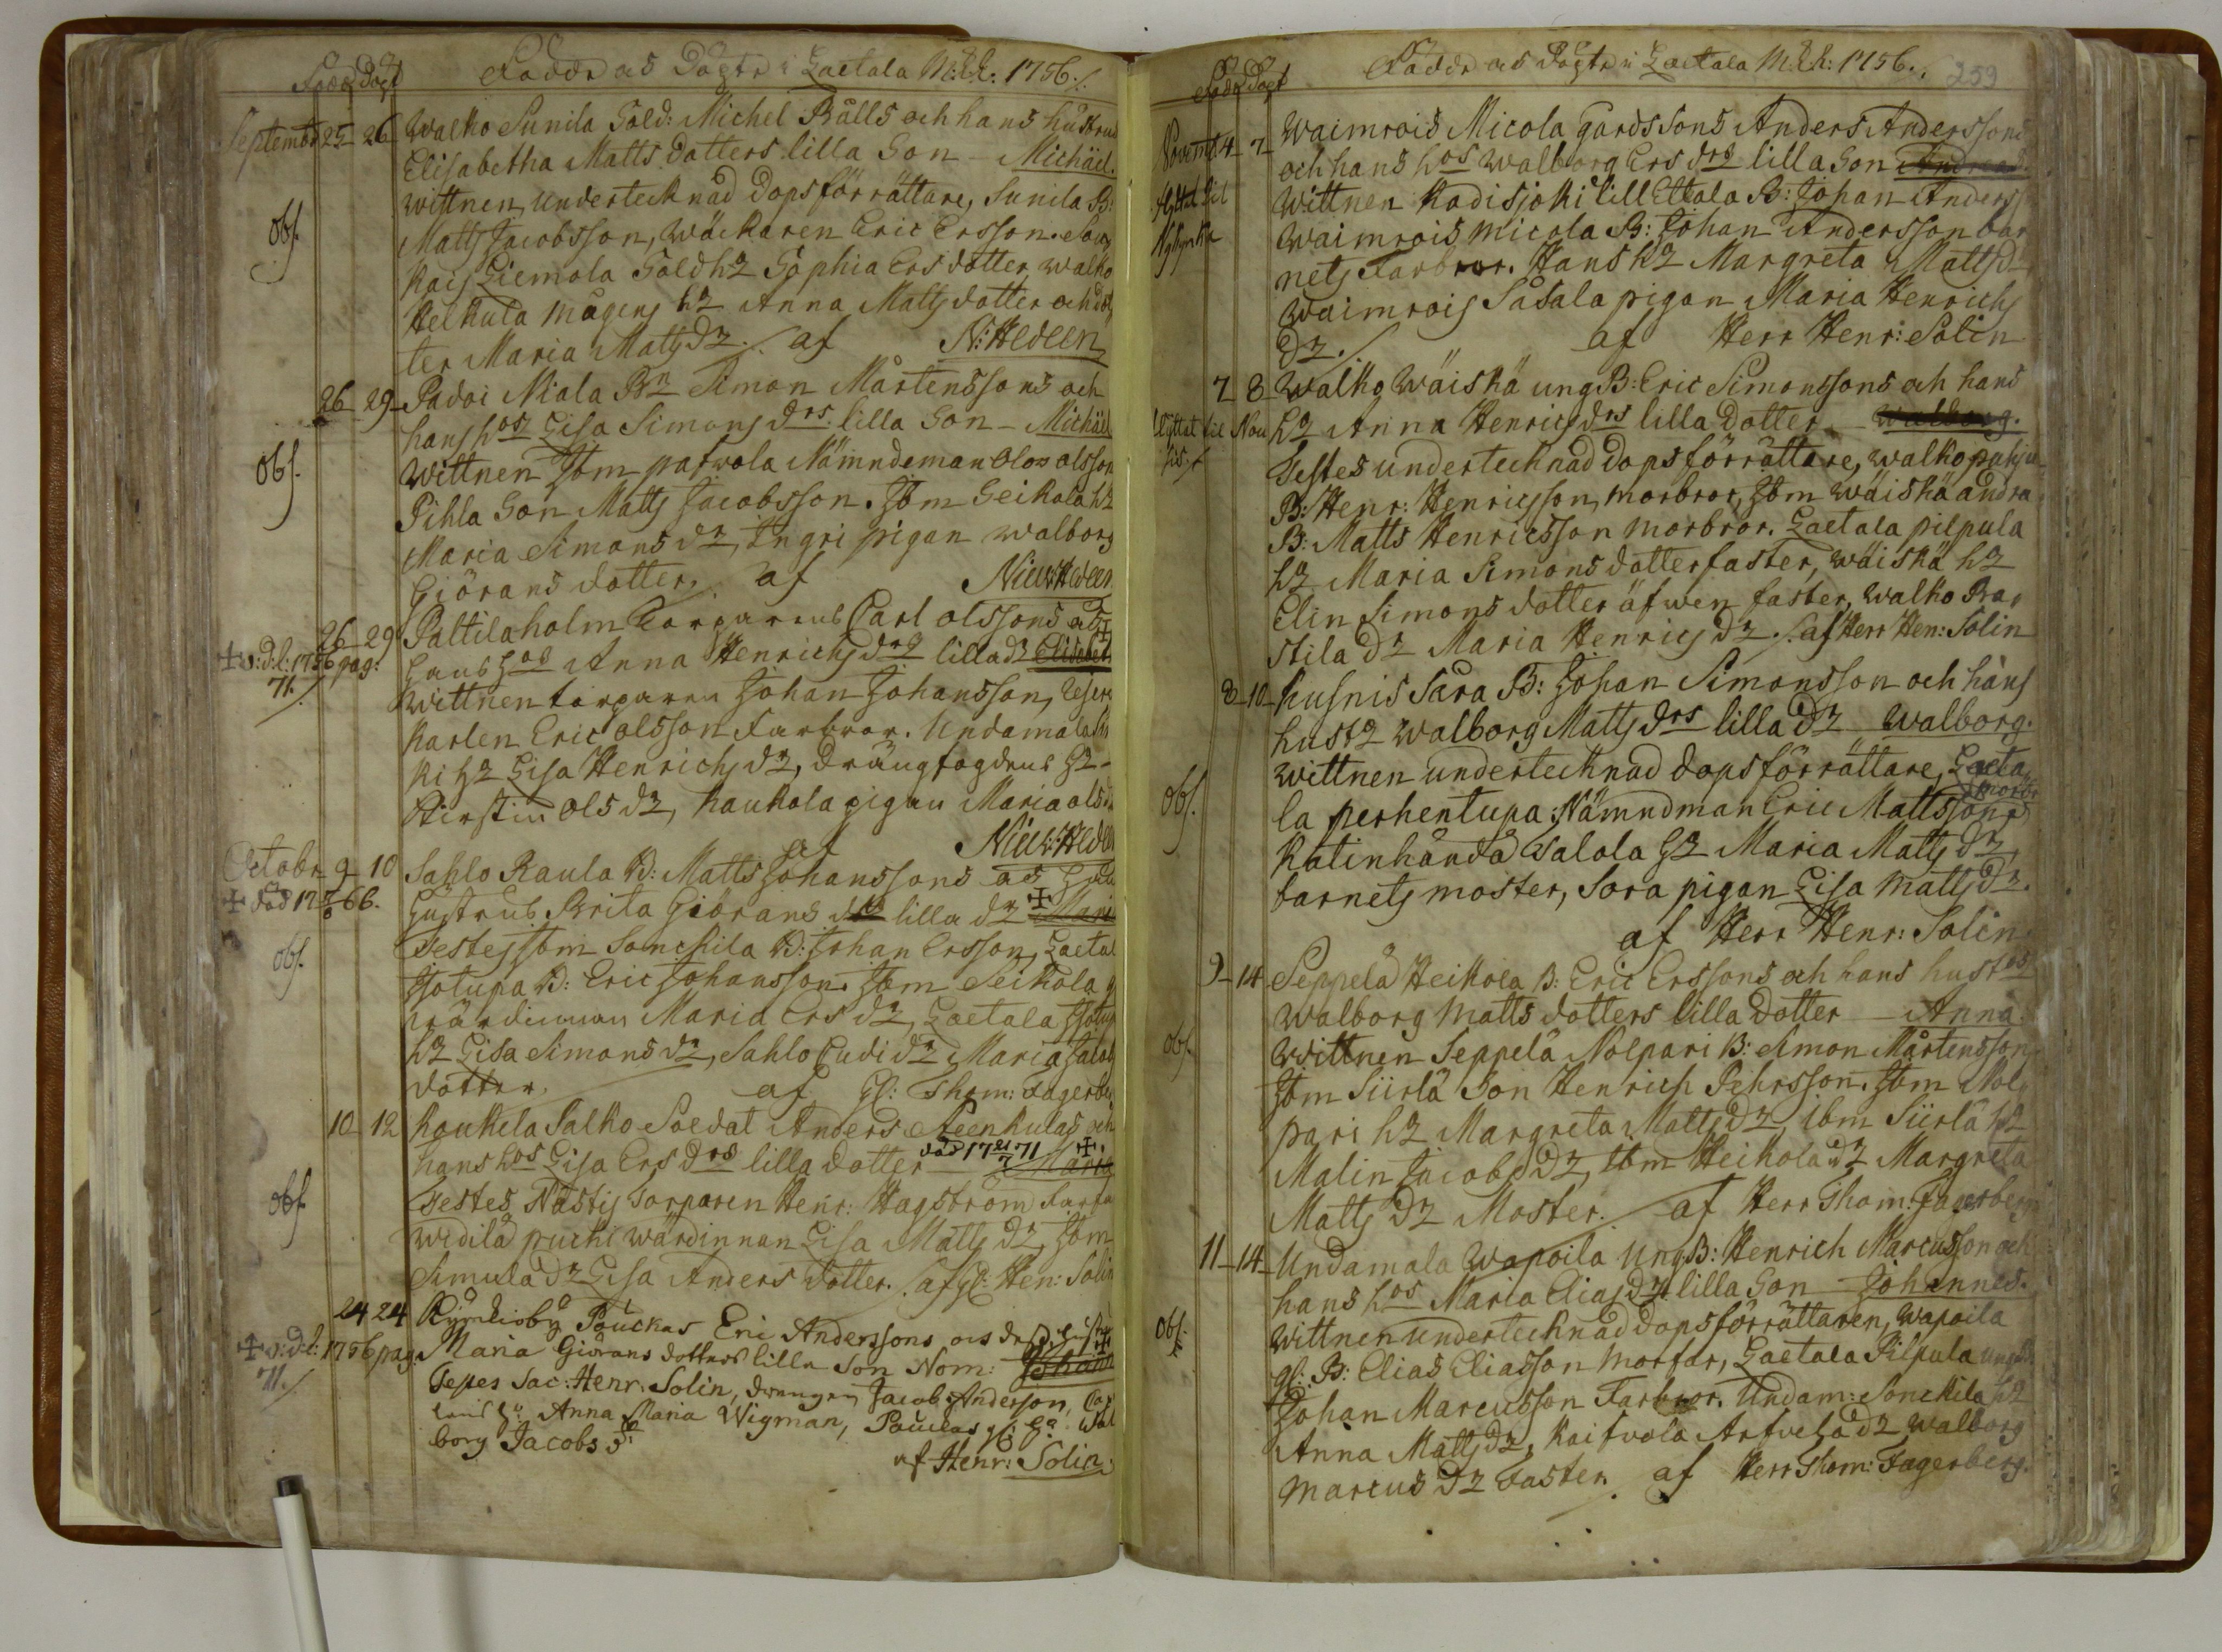 Född Döpt Födde och Döpte i Laetala M:K: 1756./.
Septembr 25 26 Walko Sunila Sold: Michel Bålls och hans hustrus
Elisabetha Matts dotters lilla Son - Michäel.
Wittnen undertecknad dopsförrättare, Sunila B:
obs. Matts Jacobsson, Wäckaren Eric Ersson.
Kais Liemola Sold hz Sophia Ersdotter, Walko
Helkula Mågens hz Anna Mattsdotter och dot
ter Maria Matts dz./. af N: Hedeen
26 29 Padoi Niala Bn Simon Mårtenssons och
hans hos Lisa Simons drs lilla Son - Michäel
obs. Wittnen Ibm pafwola Nämndeman Olow olsson
Pihla Son Matts Jacobsson. Ibm Seikola hz
Maria Simons dz, Ingri pigan Walborg
Giörans dotter. af Hedeen
26 29 Paltilaholm Torparens Carl olssons och
v:d:l: 1756 pag: 71. hans hos Anna Henrichs drs lilla dz Elisabet
Wittnen torparen Johan Johansson,
Karlen Eric olsson Farbror. Undamala
ki hz Lisa Henrichs dz, Drängfogdens hz
Kirstin ols dz, Kaukola pigan Maria ols
af Hedeen
Octobr 9 10 Sahlo Raula B: Matts Johanssons och
död 66. hustrus Brita Giörans drs lilla dz Maria
obs. Testes Ibm Sonckila B: Johan Ersson, Laetal
Isotupa B: Eric Johansson. Ibm Seikola
wärdinnan Maria Ers dz, Laetala Isotup
hz Lisa Simons dz, Sahlo dz Maria Jacob
dotter. af Thom: Fagerber
10 12 Kaukela Salko Soldat Anders och
hans hos Lisa Ers drs lilla dotter död 17 21/7 71 Maria
obs. Testes Nästis Torparen Henr: Hagström
Widilä puchi wärdinnan Lisa Matts dz, Ibm
Simula dz Lisa Anders dotter. af Hen: Solin
24 24 Kymleby Pauckas Eric Anderssons och dess hustrus
v:d:l: 1756 pag. 71. Maria Giörans dotters lilla Son Nom: Johann
Testes Sac: Henr: Solin, drengen Jacob Andersson,
Anna Maria Wigman, Pauckas Wal
borg Jacobs dr
af Henr: Solin.
Född Döpt Födde och Döpte i Laetala M:K: 1756./. 259
Novembr 4 7 Waimrois Micola gårds Sons Anders Anderssons
och hans hos Walborg Ers drs lilla Son Andreas
flyttat til Nykyrka Wittnen Kadisjoki lill Ettala B: Johan Anders
Waimrois Micola B: Johan Andersson bar
nets Farbror. Hans hz Margreta Matts d
Waimrois Såsala pigan Maria Henrichs
dz./. af Herr Henr: Solin
7 8 Walko Wäiskä ung B: Eric Simonssons och hans
flyttat til Nou sis hz Anna Henrics drs lilla dotter - Walborg.
Testes undertecknad dopsförrättare, Walko
B: Henr: Henricsson, morbror, Ibm Wäiskä andra
B: Matts Henricsson morbror. Laetala pilpula
hz Maria Simons dotter faster, Wäiskä hz
Elin Simons dotter äfwen faster, Walko Ra
stila dz Maria Henrics dz./. af Herr Hen: Solin
8 10 Kusnis Sara B: Johan Simonsson och hans
hust2 Walborg Matts drs lilla dz Walborg.
Wittnen undertecknad dopsförrättare, Laeta
obs. la perhentupa Nämndman Eric Mattsson morbr
Katinhända Salola hz Maria Matts dz,
barnets moster, Sora pigan Lisa Matts dz.
af Herr Henr: Solin.
9 14 Seppelä Heikola B: Eric Erssons och hans hustrus
Walborg Matts dotters lilla dotter - Anna.
obs. Wittnen Seppelä Nolpari B: Simon Mårtensson.
Ibm Siirlä Son Henrich Pehrsson. Ibm Nol
pari hz Margreta Matts dz, Ibm Siirlä hz
Malin Jacobs dz, Ibm Heikola dz Margreta
Matts dz Moster. af Herr Thom: Fagerberg
11 14 Undamala Wapoila Ung B: Henrich Marcusson och
hans hos Maria Elias drs lilla Son Johannes.
obs. Wittnen undertecknad dopsförrättaren, Wapoila
gl: B: Elias Eliasson Morfar, Laetala Pilpula ung B:
Johan Marcusson Farbror. Undam: Sonckila hz
Anna Matts dz, Kaifvola Arfvela dz Walborg
Marcus dz Faster. af Herr Thom: Fagerberg.